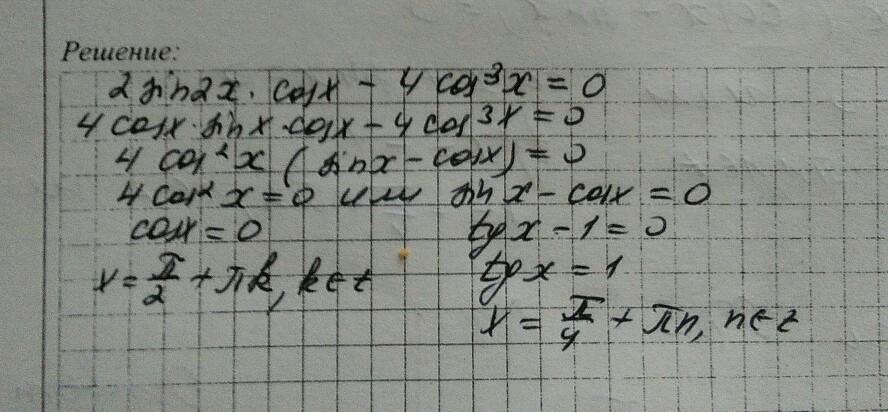 Решение:
2 sin2x · cosx - 4 cos³x = 0
4 cosx · sinx · cosx - 4 cos³x = 0
4 cos²x (sinx - cosx) = 0
4 cos²x = 0 или sinx - cosx = 0
cosx = 0 tgx - 1 = 0
x = π/2 + πk, k∈z tgx = 1
x = π/4 + πn, n∈z